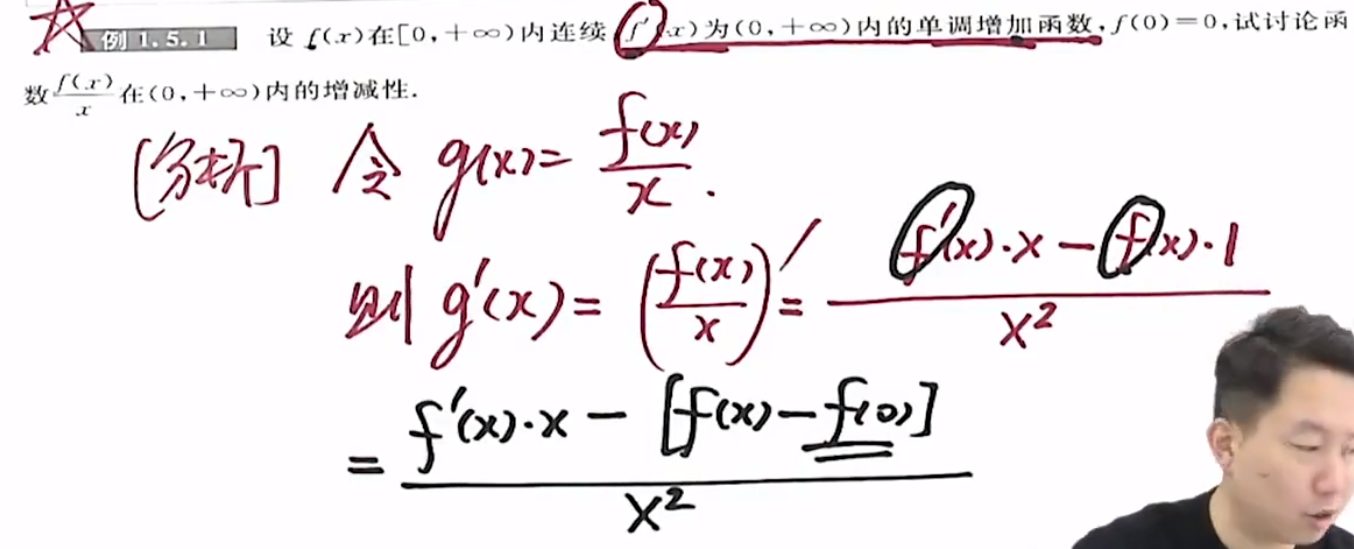 例 1.5.1 设 f(x)在[0,+∞)内连续,f′(x)为(0,+∞)内的单调增加函数,f(0)=0,试讨论函
数 f(x)/x 在(0,+∞)内的增减性.
[分析] 令 g(x)= f(x)/x .
则 g′(x)= (f(x)/x)′ = (f′(x)·x-f(x)·1)/x²
= (f′(x)·x-[f(x)-f(0)])/x²